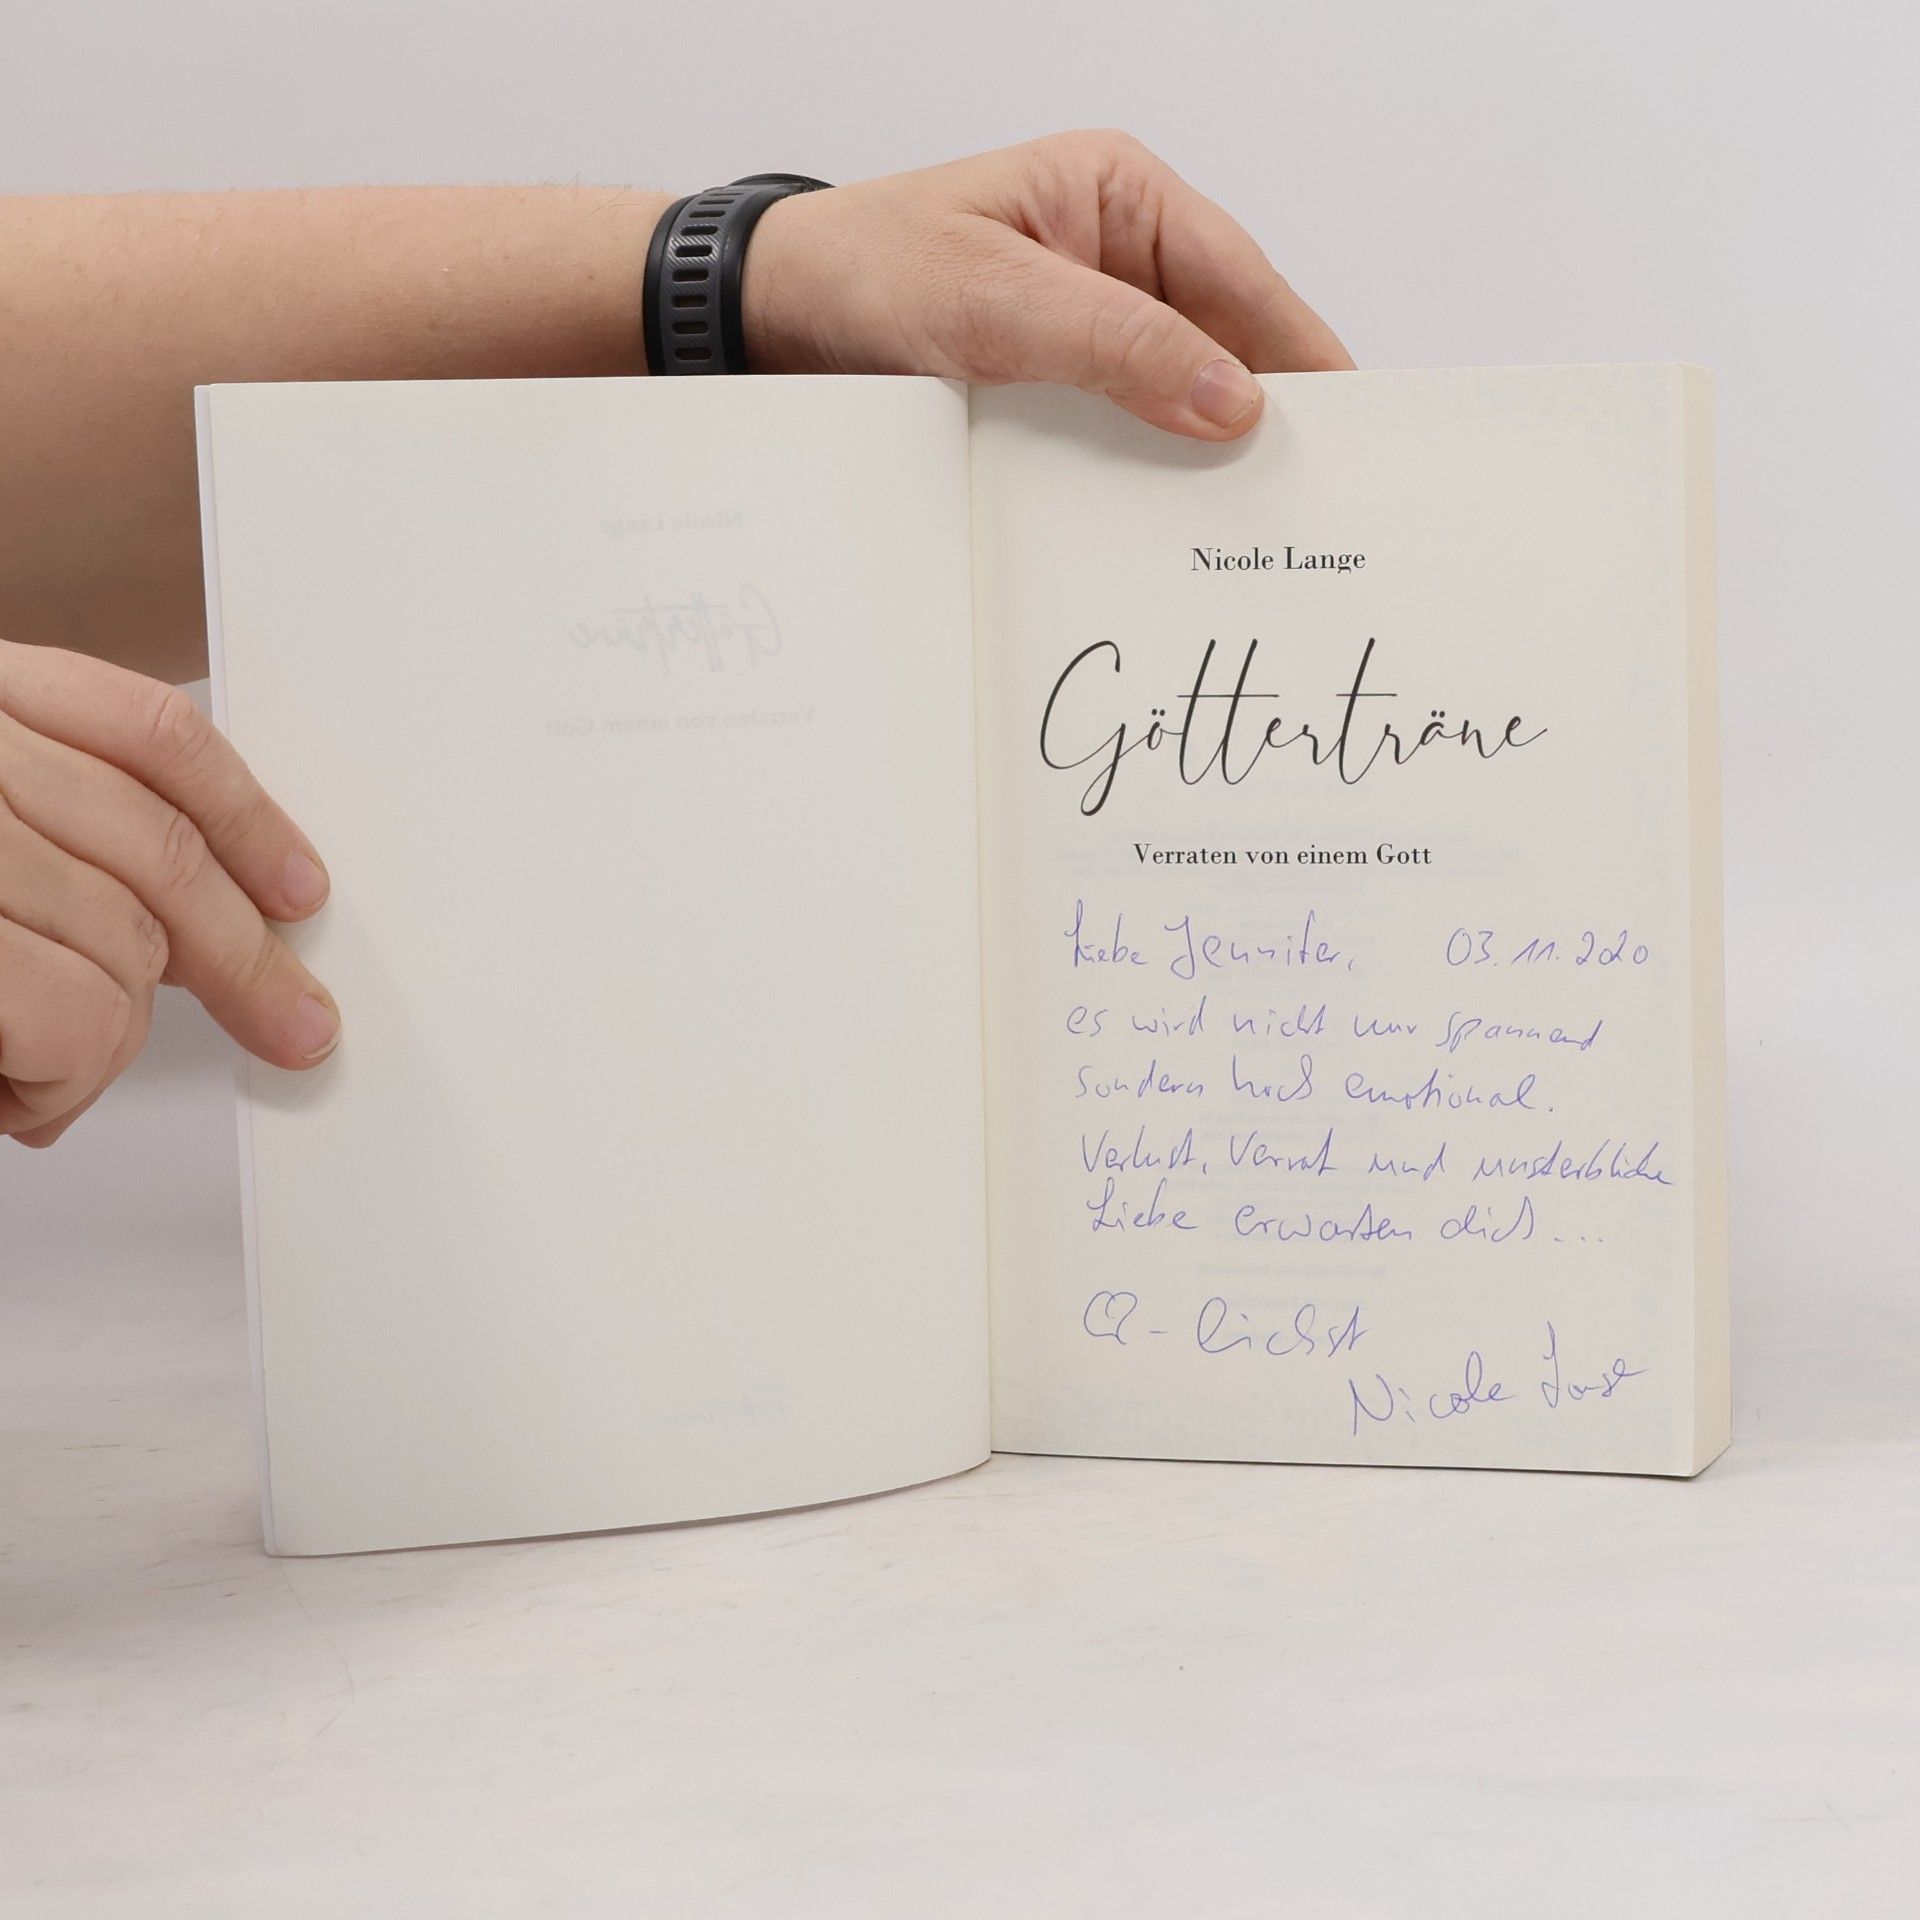 Nicole Lange
Götterträne
Verraten von einem Gott
Nicole Lange
Götterträne
Verraten von einem Gott
Liebe Jennifer, 03.11.2020
es wird nicht nur spannend
sondern hoch emotional.
Verlust, Verrat und unsterbliche
Liebe erwarten dich...
-lichst
Nicole